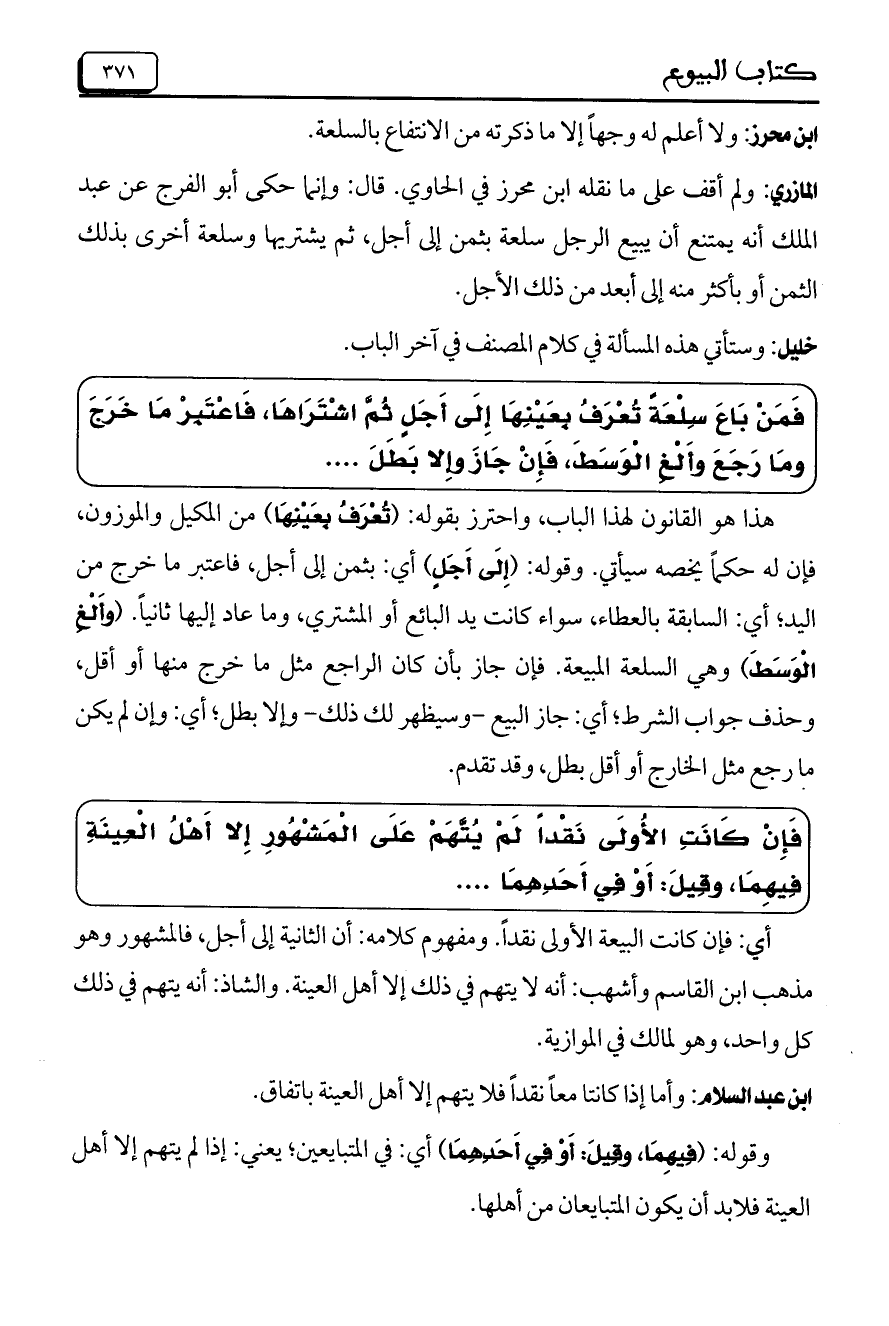 كتاب البيوع
٣٧١
ابن محرز: ولا أعلم له وجهاً إلا ما ذكرته من الانتفاع بالسلعة.
المازري: ولم أقف على ما نقله ابن محرز في الحاوي. قال: وإنما حكى أبو الفرج عن عبد
الملك أنه يمتنع أن يبيع الرجل سلعة بثمن إلى أجل، ثم يشتريها وسلعة أخرى بذلك
الثمن أو بأكثر منه إلى أبعد من ذلك الأجل.
خليل: وستأتي هذه المسألة في كلام المصنف في آخر الباب.
فَمَنْ بَاعَ سِلْعَةً تُعْرَفُ بِعَيْنِهَا إِلَى أَجَلٍ ثُمَّ اشْتَرَاهَا، فَاعْتَبِرْ مَا خَرَجَ
وما رَجَعَ وأَلْغِ الْوَسَطَ، فَإِنْ جَازَ وإِلا بَطَلَ ....
هذا هو القانون لهذا الباب، واحترز بقوله: (تُعْرَفُ بِعَيْنِهَا) من المكيل والموزون،
فإن له حكماً يخصه سيأتي. وقوله: (إِلَى أَجَلٍ) أي: بثمن إلى أجل، فاعتبر ما خرج من
اليد؛ أي: السابقة بالعطاء، سواء كانت يد البائع أو المشتري، وما عاد إليها ثانياً. (وأَلْغِ
الْوَسَطَ) وهي السلعة المبيعة. فإن جاز بأن كان الراجع مثل ما خرج منها أو أقل،
وحذف جواب الشرط؛ أي: جاز البيع -وسيظهر لك ذلك- وإلا بطل؛ أي: وإن لم يكن
ما رجع مثل الخارج أو أقل بطل، وقد تقدم.
فَإِنْ كَانَتِ الأُولَى نَقْداً لَمْ يُتَّهَمْ عَلَى الْمَشْهُورِ إِلا أَهْلُ الْعِينَةِ
فِيهِمَا، وقِيلَ: أَوْ فِي أَحَدِهِمَا ....
أي: فإن كانت البيعة الأولى نقداً. ومفهوم كلامه: أن الثانية إلى أجل، فالمشهور وهو
مذهب ابن القاسم وأشهب: أنه لا يتهم في ذلك إلا أهل العينة. والشاذ: أنه يتهم في ذلك
كل واحد، وهو لمالك في الموازية.
ابن عبد السلام: وأما إذا كانتا معاً نقداً فلا يتهم إلا أهل العينة باتفاق.
وقوله: (فِيهِمَا، وقِيلَ: أَوْ فِي أَحَدِهِمَا) أي: في المتبايعين؛ يعني: إذا لم يتهم إلا أهل
العينة فلابد أن يكون المتبايعان من أهلها.